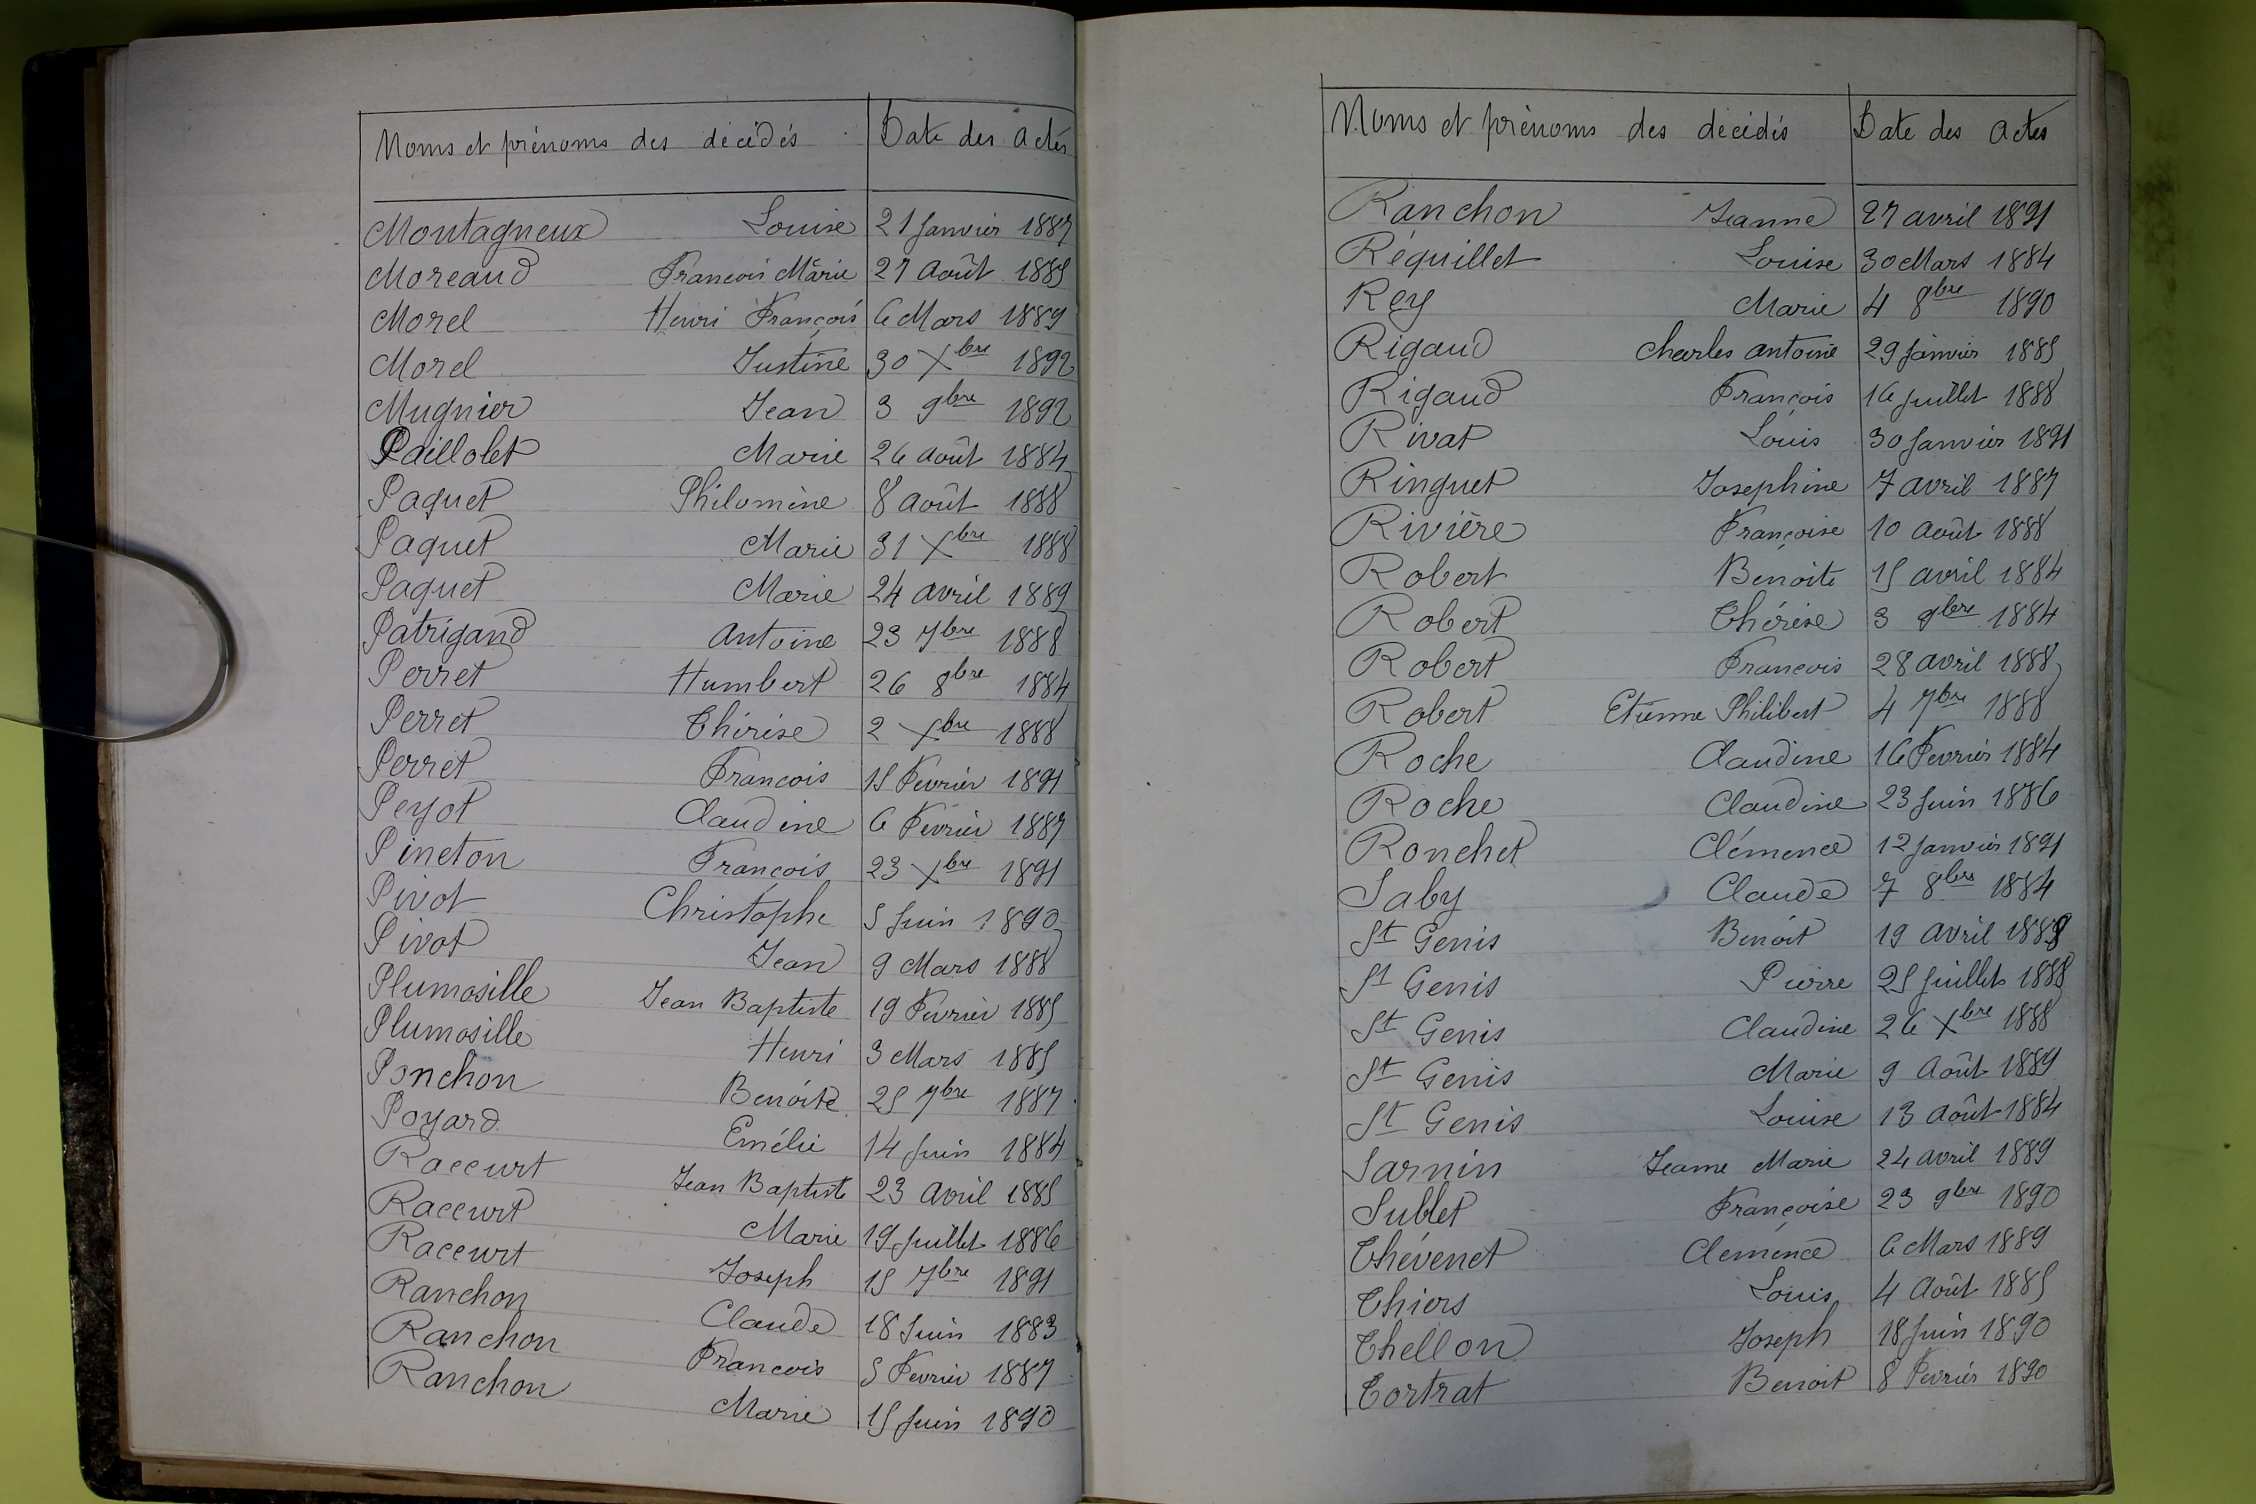 Noms et prénoms des décédés Date des actes
Montagneux Louise 21 Janvier 1887
Moreaud François Marie 27 Août 1885
Morel Henri François 6 Mars 1889
Morel Justine 30 Xbre 1892
Mugnier Jean 3 9bre 1892
Paillolet Marie 26 août 1884
Paquet Philomène 8 août 1888
Paquet Marie 31 Xbre 1888
Paquet Marie 24 avril 1889
Patrigand Antoine 23 7bre 1888
Perret Humbert 26 8bre 1884
Perret Thérèse 2 Xbre 1888
Perret François 15 Fevrier 1891
Peyot Claudine 6 Fevrier 1887
Pineton François 23 Xbre 1891
Pivot Christophe 5 Juin 1890
Pivot Jean 9 Mars 1888
Plumosille Jean Baptiste 19 Fevrier 1885
Plumosille Henri 3 Mars 1885
Ponchon Benoîte 25 7bre 1887
Poyard Emélie 14 Juin 1884
Raccurt Jean Baptiste 23 avril 1885
Raccurt Marie 19 Juillet 1886
Raccurt Joseph 15 7bre 1891
Ranchon Claude 18 Juin 1883
Ranchon François 5 Fevrier 1887
Ranchon Marie 15 Juin 1890
Noms et prénoms des décédés Date des actes
Ranchon Jeanne 27 avril 1891
Réquillet Louise 30 Mars 1884
Rey Marie 4 8bre 1890
Rigaud Charles Antoine 29 Janvier 1885
Rigaud François 16 Juillet 1888
Rivat Louis 30 Janvier 1891
Ringuet Josephine 7 avril 1887
Rivière Françoise 10 août 1888
Robert Benoite 15 avril 1884
Robert Thérèse 3 9bre 1884
Robert François 28 avril 1888
Robert Etienne Philibert 4 7bre 1888
Roche Claudine 16 Fevrier 1884
Roche Claudine 23 Juin 1886
Ronchet Clémence 12 Janvier 1891
Saby Claude 7 8bre 1884
St Genis Benoit 19 avril 1888
St Genis Pierre 25 Juillet 1888
St Genis Claudine 26 Xbre 1888
St Genis Marie 9 Août 1889
St Genis Louise 13 août 1884
Sarnin Jeanne Marie 24 avril 1889
Sublet Françoise 23 9bre 1890
Thévenet Clemence 6 Mars 1889
Thiers Louis 4 Août 1885
Thellon Joseph 18 Juin 1890
Tortrat Benoit 8 Fevrier 1890